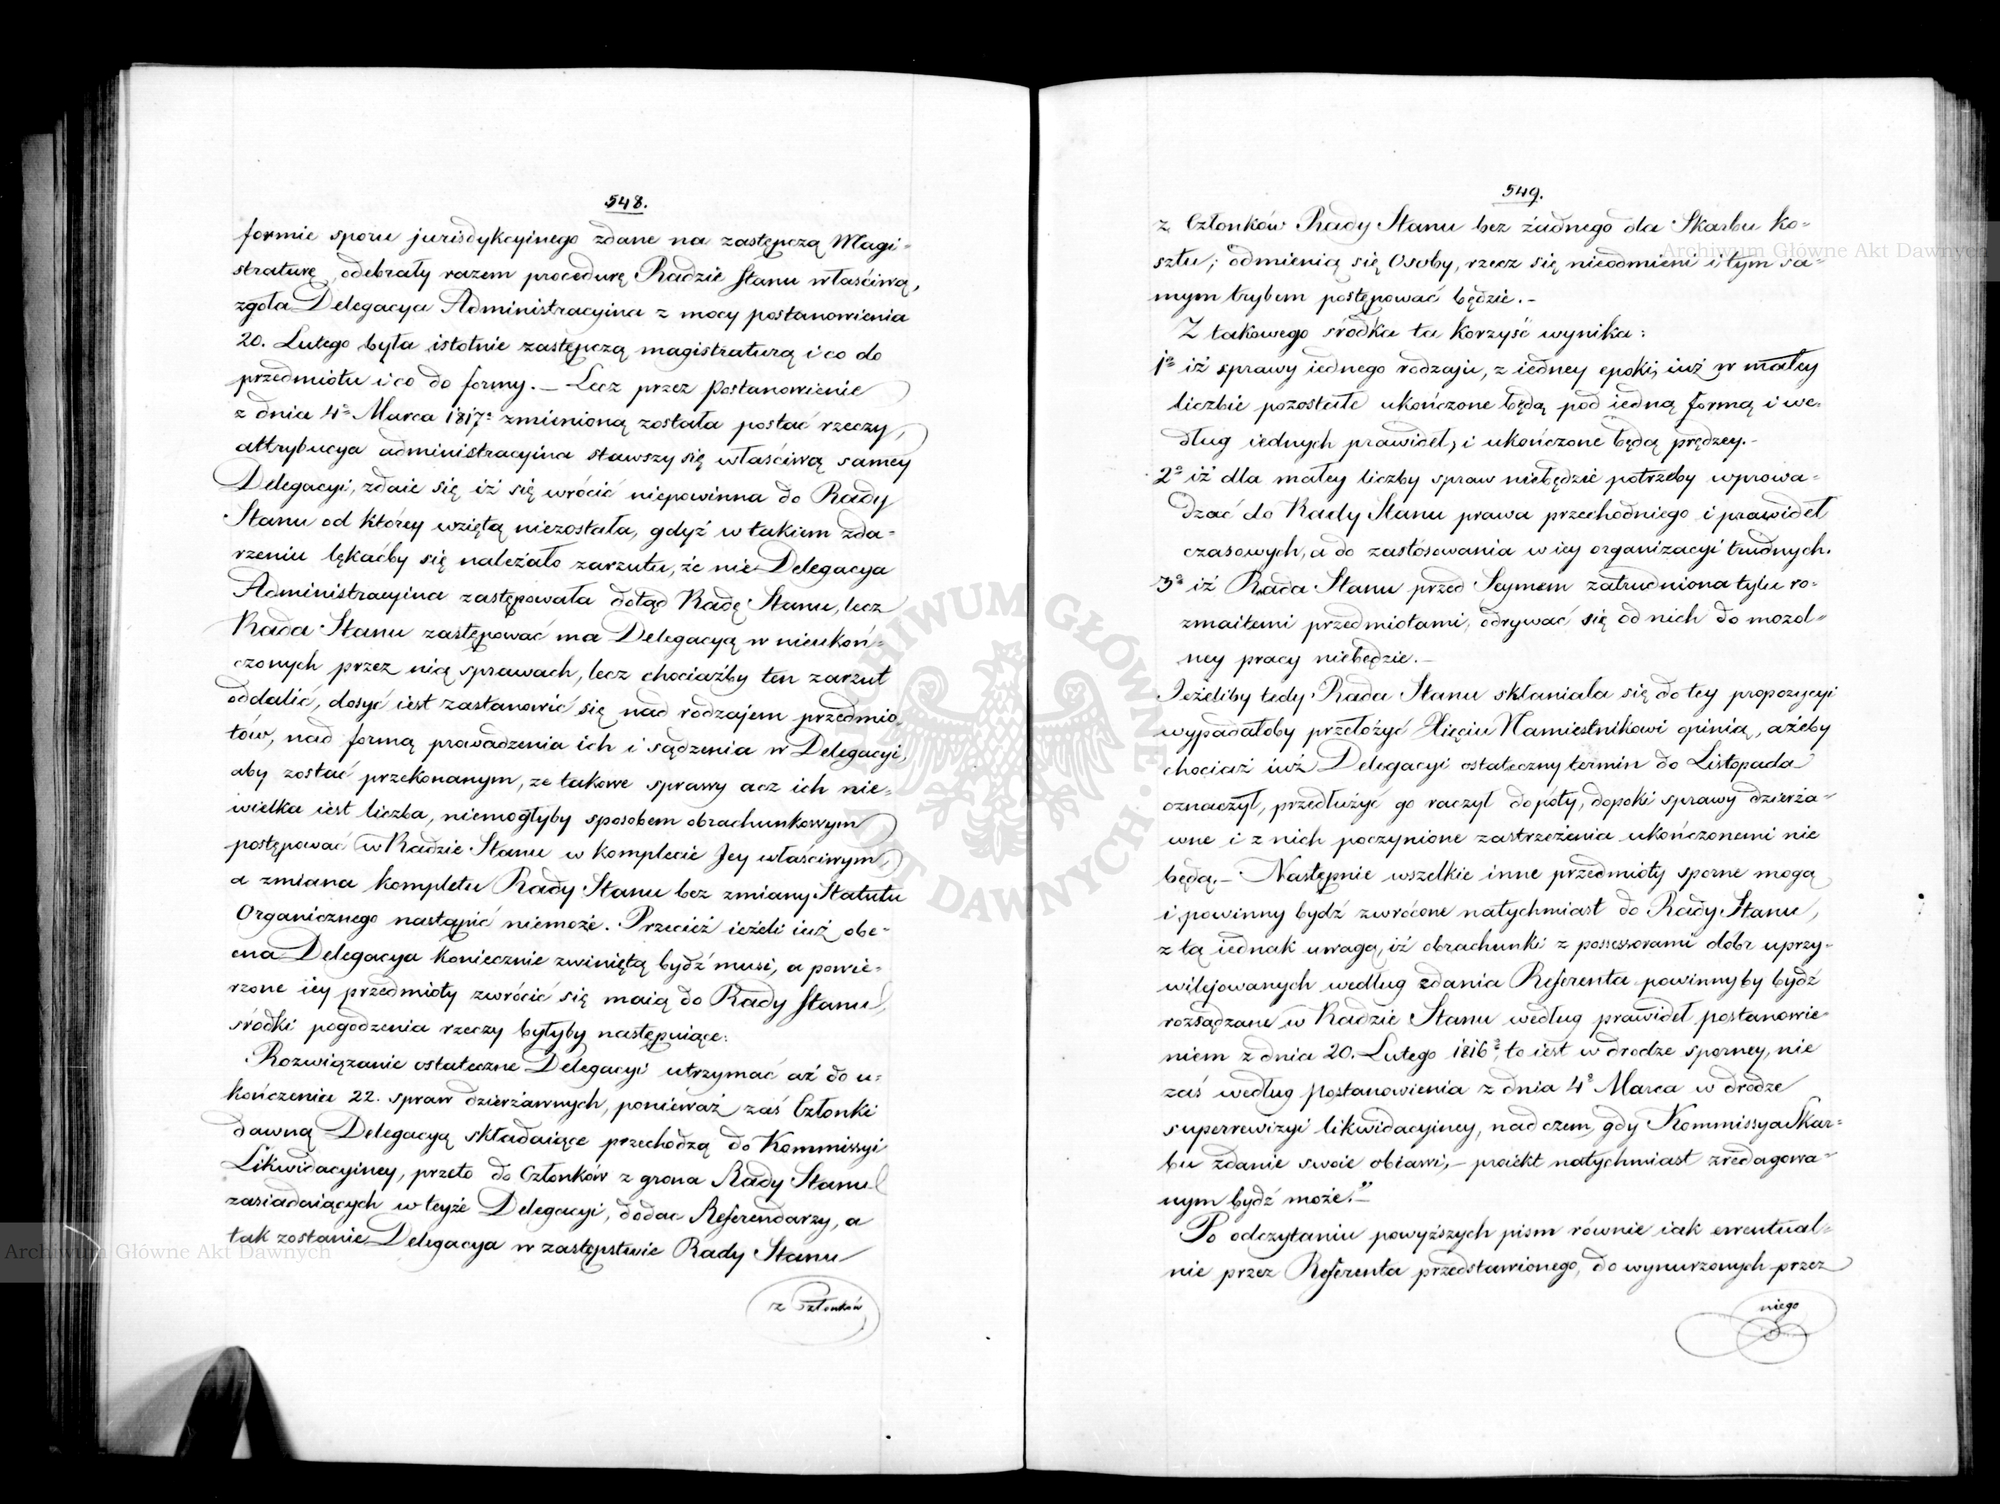 548.
formie sporu jurisdykcyinego zdane na zastępczą Magi-
straturę, odebrały razem procedurę Radzie Stanu właściwą,
zgoła Delegacya Administracyina z mocy postanowienia
20. Lutego była istotnie zastępczą magistraturą i co do
przedmiotu i co do formy. — Lecz przez Postanowienie
z dnia 4º Marca 1817º zmienioną została postać rzeczy,
attrybucya administracyina stawszy się właściwą samey
Delegacyi, zdaie się iż się wrócić niepowinna do Rady
Stanu od którey wziętą niezostała, gdyż w takiem zda-
rzeniu lękaćby się należało zarzutu, że nie Delegacya
Administracyina zastępowała dotąd Radę Stanu, lecz
Rada Stanu zastępować ma Delegacyą w nieukoń-
czonych przez nią sprawach, lecz chociażby ten zarzut
oddalić, dosyć iest zastanowić się nad rodzajem przedmio-
tów, nad formą prowadzenia ich i sądzenia w Delegacyi,
aby zostać przekonanym, że takowe sprawy acz ich nie-
wielka iest liczba, niemogłyby sposobem obrachunkowym
postępować w Radzie Stanu w komplecie Jey właściwym,
a zmiana kompletu Rady Stanu bez zmiany Statutu
Organicznego nastąpić niemoże. Przecież ieżeli iuż obe-
cna Delegacya koniecznie zwiniętą bydź musi, a powie-
rzone iey przedmioty zwrócić się maią do Rady Stanu,
środki pogodzenia rzeczy byłyby następuiące:
Rozwiązanie ostateczne Delegacyi utrzymać aż do u-
kończenia 22. spraw dzierżawnych, ponieważ zaś Członki
dawną Delegacyą składaiące przechodzą do Kommissyi
Likwidacyiney, przeto do Członków z grona Rady Stanu
zasiadaiących w teyże Delegacyi, dodac Referendarzy, a
tak zostanie Delegacya w zastępstwie Rady Stanu
z Członków
549.
z Członków Rady Stanu bez żadnego dla Skarbu ko-
sztu; odmienią się Osoby, rzecz się nieodmieni i tym sa-
mym trybem postępować będzie. —
Z takowego środka ta korzyść wynika:
1º iż sprawy iednego rodzaju, z iedney epoki, iuż w małey
liczbie pozostałe ukończone będą pod iedną formą i we-
dług iednych prawideł, i ukończone będą prędzey. —
2º iż dla małey liczby spraw niebędzie potrzeby wprowa-
dzać do Rady Stanu prawa przechodniego i prawideł
czasowych, a do zastósowania w iey organizacyi trudnych.
3º iż Rada Stanu przed Seymem zatrudniona tylu ro-
zmaitemi przedmiotami, odrywać się od nich do mozol-
ney pracy niebędzie. —
Jeżeliby tedy Rada Stanu skłaniała się do tey propozycyi
wypadałoby przełożyć Xięciu Namiestnikowi opinią, ażeby
chociaż iuż Delegacyi ostateczny termin do Listopada
oznaczył, przedłużyć go raczył dopóty, dopoki sprawy dzierża-
wne i z nich poczynione zastrzeżenia ukończonemi nie
będą. — Następnie wszelkie inne przedmioty sporne mogą
i powinny bydź zwrócone natychmiast do Rady Stanu,
z tą iednak uwagą, iż obrachunki z possessorami dobr uprzy-
wilejowanych według zdania Referenta powinnyby bydź
rozsądzane w Radzie Stanu według prawideł postanowie-
niem z dnia 20. Lutego 1816º, to iest w drodze sporney, nie
zaś według postanowienia z dnia 4º Marca w drodze
superrewizyi likwidacyiney, nad czem, gdy Kommissya Skar-
bu zdanie swoie obiawi, — proiekt natychmiast zredagowa-
nym bydź może." —
Po odczytaniu powyższych pism równie iak ewentual-
nie przez Referenta przedstawionego, do wynurzonych przez
niego
Archiwum Główne Akt Dawnych
Archiwum Główne Akt Dawnych
ARCHIWUM GŁÓWNE AKT DAWNYCH